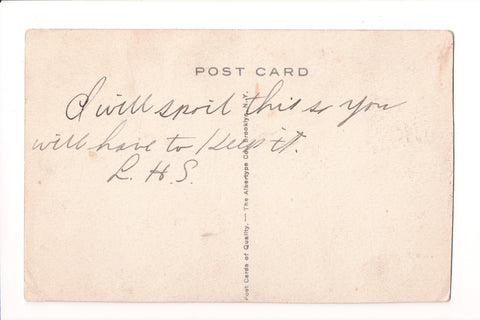 POST CARD
I will spoil this so you
will have to keep it.
L. H. S.
Post Cards of Quality. — The Albertype Co., Brooklyn, N.Y.